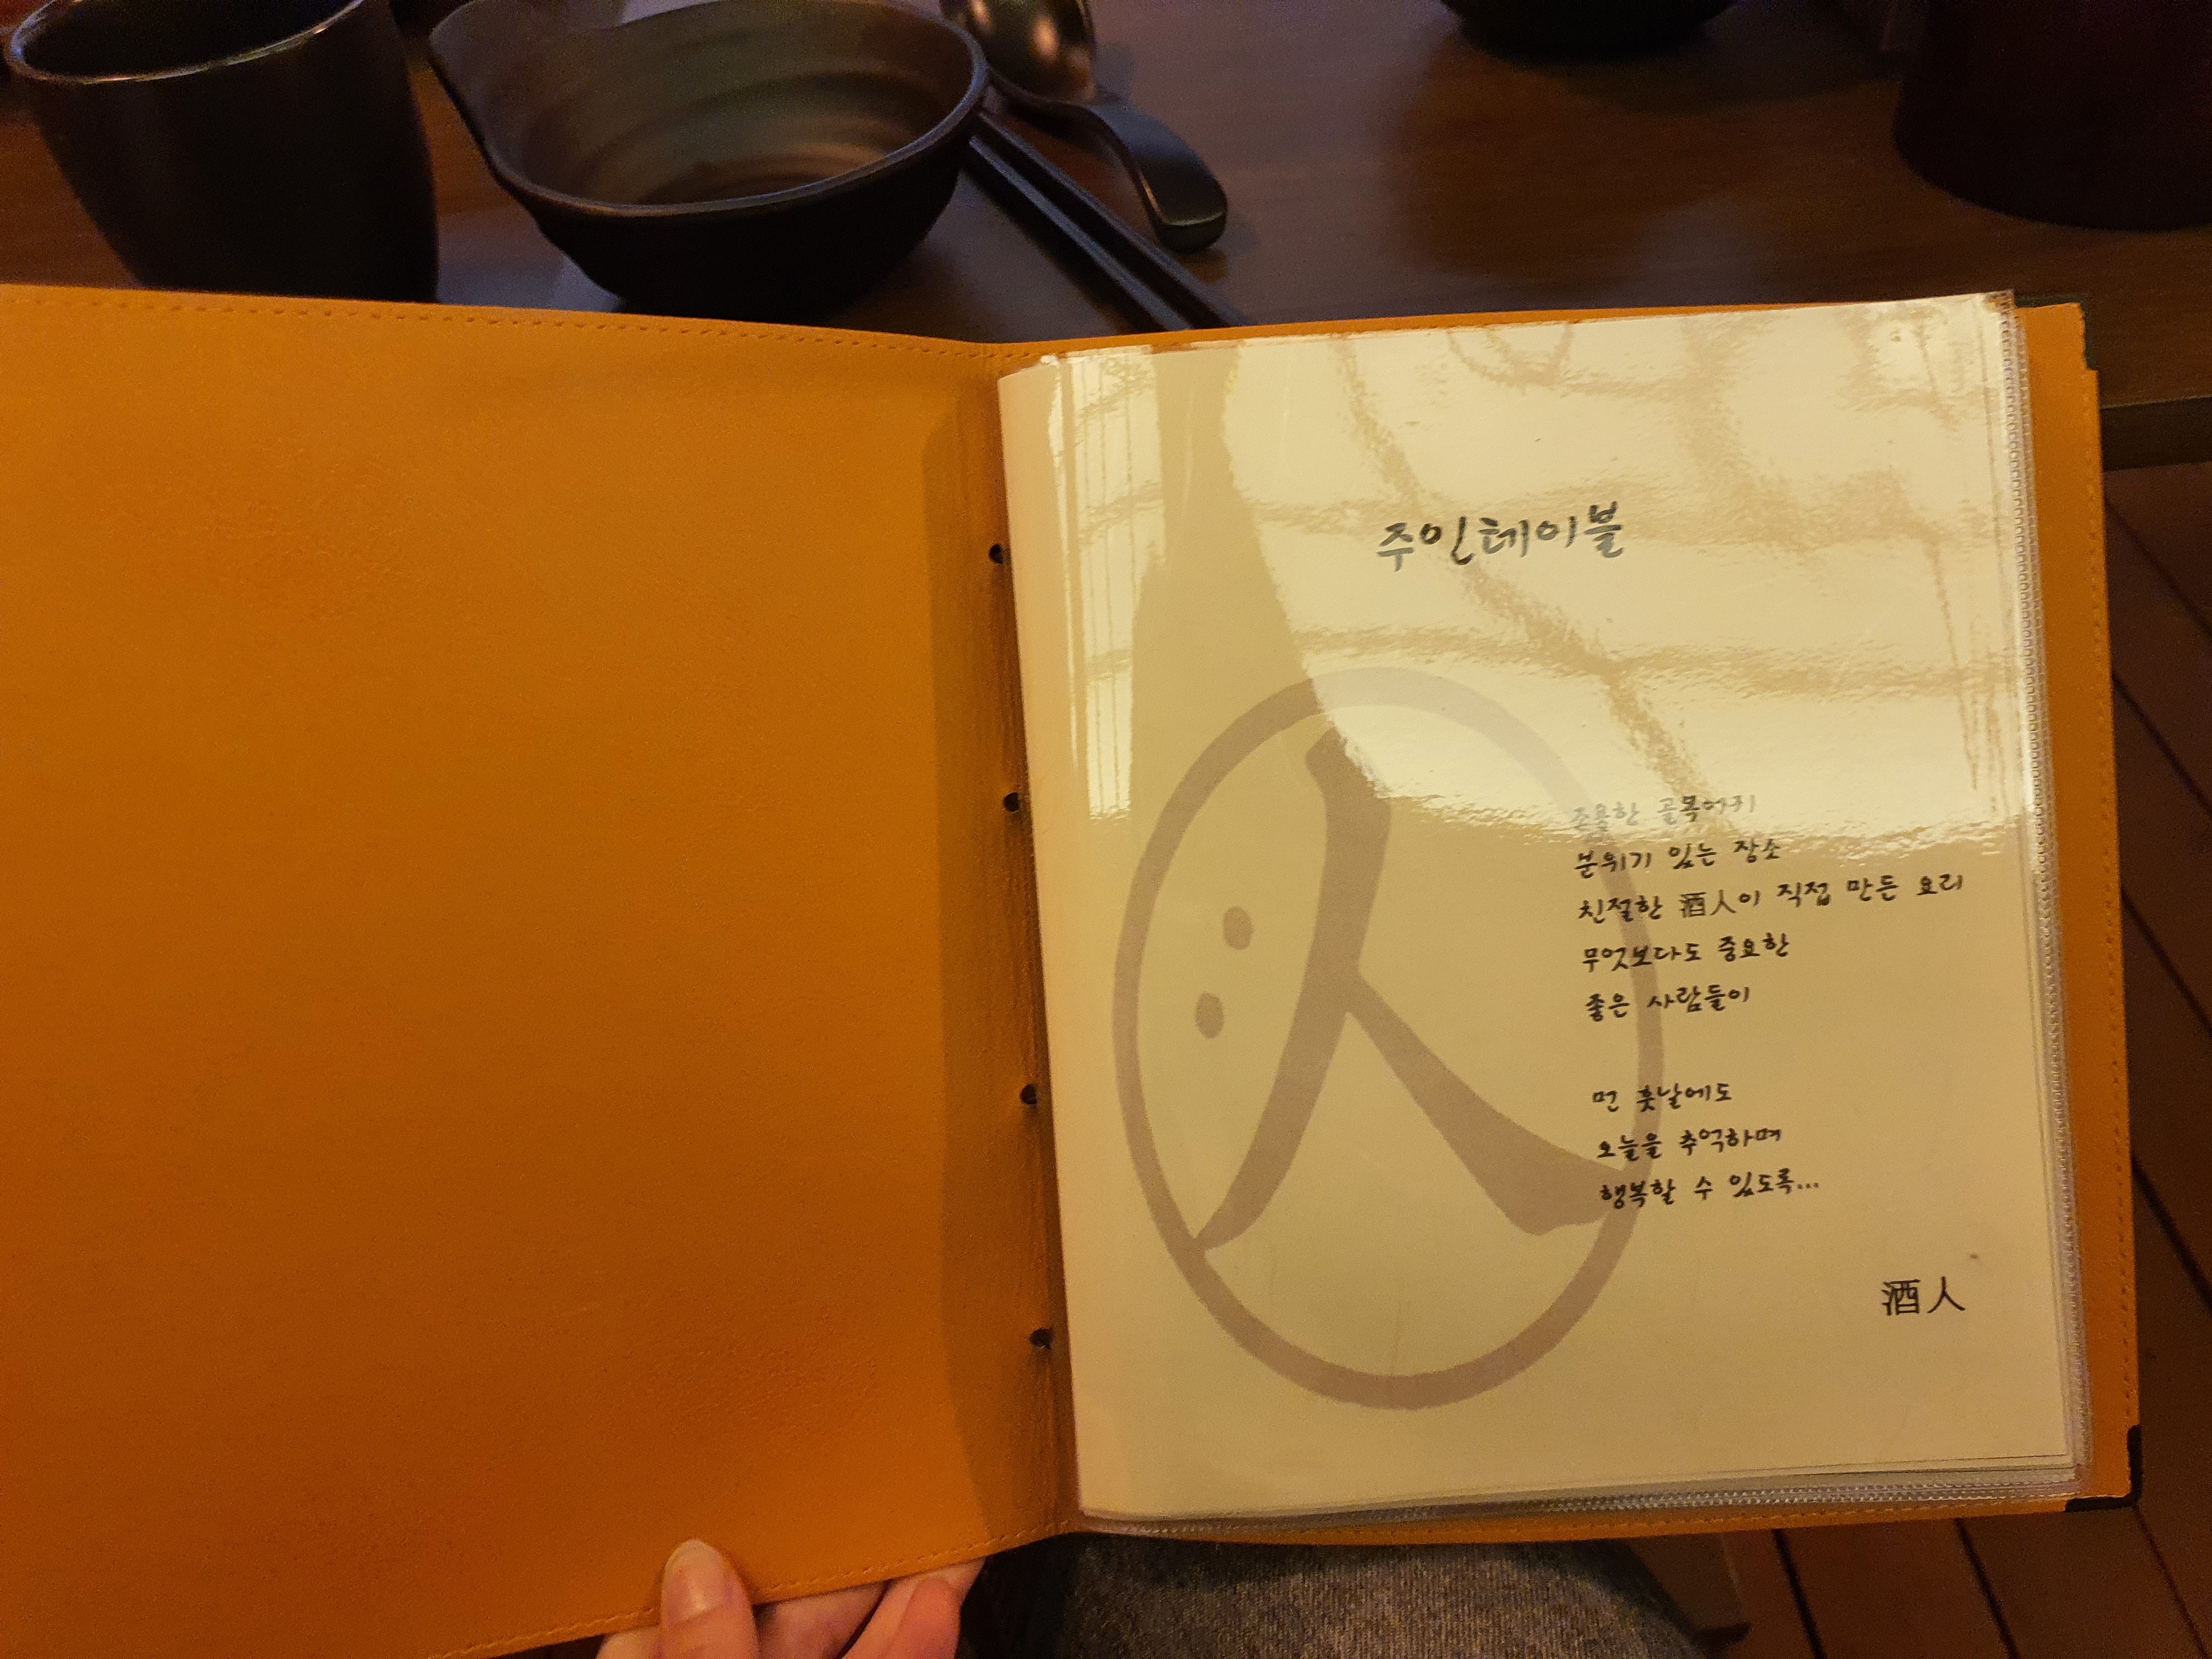 주인테이블
조용한 골목어귀
분위기 있는 장소
친절한 酒人이 직접 만든 요리
무엇보다도 중요한
좋은 사람들이
먼 훗날에도
오늘을 추억하며
행복할 수 있도록...
酒人